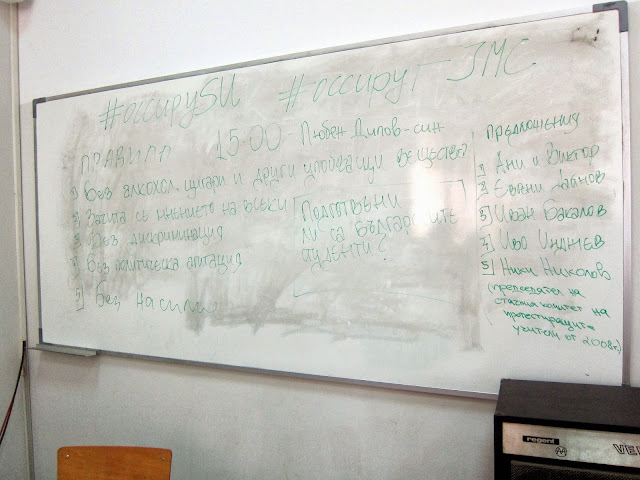 #occupySU #occupy JMC
ПРАВИЛА 15:00 - Любен Дилов-син
1) Без алкохол, цигари и други упойващи вещества
2) Зачита се мнението на всеки
3) Без дискриминация
4) Без политическа агитация
5) Без насилие
Подготвени
ли са българските
студенти?
ПРЕДЛОЖЕНИЯ
1) Дани и Виктор
2) Евгени Дайнов
3) Иван Бакалов
4) Иво Инджев
5) Ники Николов
(председател на
стачния комитет на
протестиращите
учители от 2008г.)
regent